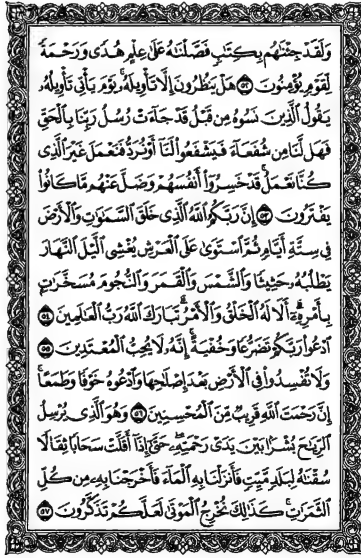 وَلَقَدْ جِئْنَٰهُم بِكِتَٰبٍ فَصَّلْنَٰهُ عَلَىٰ عِلْمٍ هُدًى وَرَحْمَةً
لِّقَوْمٍ يُؤْمِنُونَ ۝٥٢ هَلْ يَنظُرُونَ إِلَّا تَأْوِيلَهُۥۚ يَوْمَ يَأْتِى تَأْوِيلُهُۥ
يَقُولُ ٱلَّذِينَ نَسُوهُ مِن قَبْلُ قَدْ جَآءَتْ رُسُلُ رَبِّنَا بِٱلْحَقِّ
فَهَل لَّنَا مِن شُفَعَآءَ فَيَشْفَعُوا۟ لَنَآ أَوْ نُرَدُّ فَنَعْمَلَ غَيْرَ ٱلَّذِى
كُنَّا نَعْمَلُۚ قَدْ خَسِرُوٓا۟ أَنفُسَهُمْ وَضَلَّ عَنْهُم مَّا كَانُوا۟
يَفْتَرُونَ ۝٥٣ إِنَّ رَبَّكُمُ ٱللَّهُ ٱلَّذِى خَلَقَ ٱلسَّمَٰوَٰتِ وَٱلْأَرْضَ
فِى سِتَّةِ أَيَّامٍ ثُمَّ ٱسْتَوَىٰ عَلَى ٱلْعَرْشِ يُغْشِى ٱلَّيْلَ ٱلنَّهَارَ
يَطْلُبُهُۥ حَثِيثًا وَٱلشَّمْسَ وَٱلْقَمَرَ وَٱلنُّجُومَ مُسَخَّرَٰتٍۭ
بِأَمْرِهِۦٓۗ أَلَا لَهُ ٱلْخَلْقُ وَٱلْأَمْرُۗ تَبَارَكَ ٱللَّهُ رَبُّ ٱلْعَٰلَمِينَ ۝٥٤
ٱدْعُوا۟ رَبَّكُمْ تَضَرُّعًا وَخُفْيَةًۚ إِنَّهُۥ لَا يُحِبُّ ٱلْمُعْتَدِينَ ۝٥٥
وَلَا تُفْسِدُوا۟ فِى ٱلْأَرْضِ بَعْدَ إِصْلَٰحِهَا وَٱدْعُوهُ خَوْفًا وَطَمَعًاۚ
إِنَّ رَحْمَتَ ٱللَّهِ قَرِيبٌ مِّنَ ٱلْمُحْسِنِينَ ۝٥٦ وَهُوَ ٱلَّذِى يُرْسِلُ
ٱلرِّيَٰحَ بُشْرًۢا بَيْنَ يَدَىْ رَحْمَتِهِۦۖ حَتَّىٰٓ إِذَآ أَقَلَّتْ سَحَابًا ثِقَالًا
سُقْنَٰهُ لِبَلَدٍ مَّيِّتٍ فَأَنزَلْنَا بِهِ ٱلْمَآءَ فَأَخْرَجْنَا بِهِۦ مِن كُلِّ
ٱلثَّمَرَٰتِۚ كَذَٰلِكَ نُخْرِجُ ٱلْمَوْتَىٰ لَعَلَّكُمْ تَذَكَّرُونَ ۝٥٧